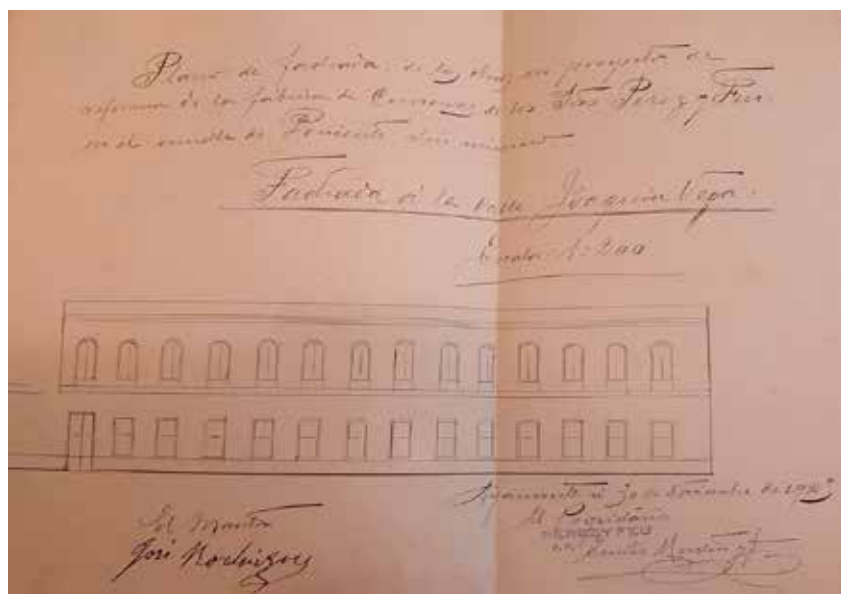 Plano de fachada, de las obras en proyecto de
reforma de la fábrica de Conservas de los Sres Perez y Feu.
en el muelle de Poniente
Fachada á la calle Joaquin Vega.
Escala 1:200
Ayamonte á 30 de de
El
José Rodriguez
El Propietario
PEREZ Y FEU